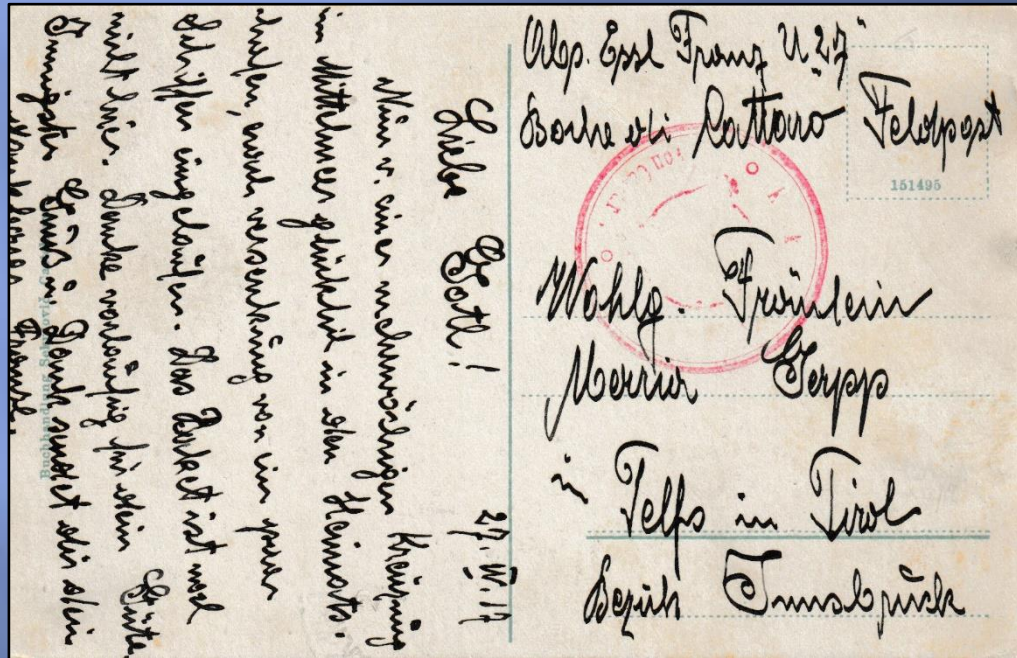 Absp. Essl Franz U. 27
Bocche di Cattaro Feldpost
151495
Wohlg. Fräulein
Maria Gapp
in Telfs in Tirol
Bezirk Innsbruck
27. IV. 17
Liebe Gotl!
Nun v. einer mehrwöchigen Kreuzung
im Mittelmeer glücklich in den Heimats-
hafen, nach versenkung von ein paar
Schiffen eingelaufen. Das Packet ist noch
nicht hier. Danke vorläufig für dein Güte
Innigste Grüß u. Dank sendet dir dein
Franzl.
Buchhandlung